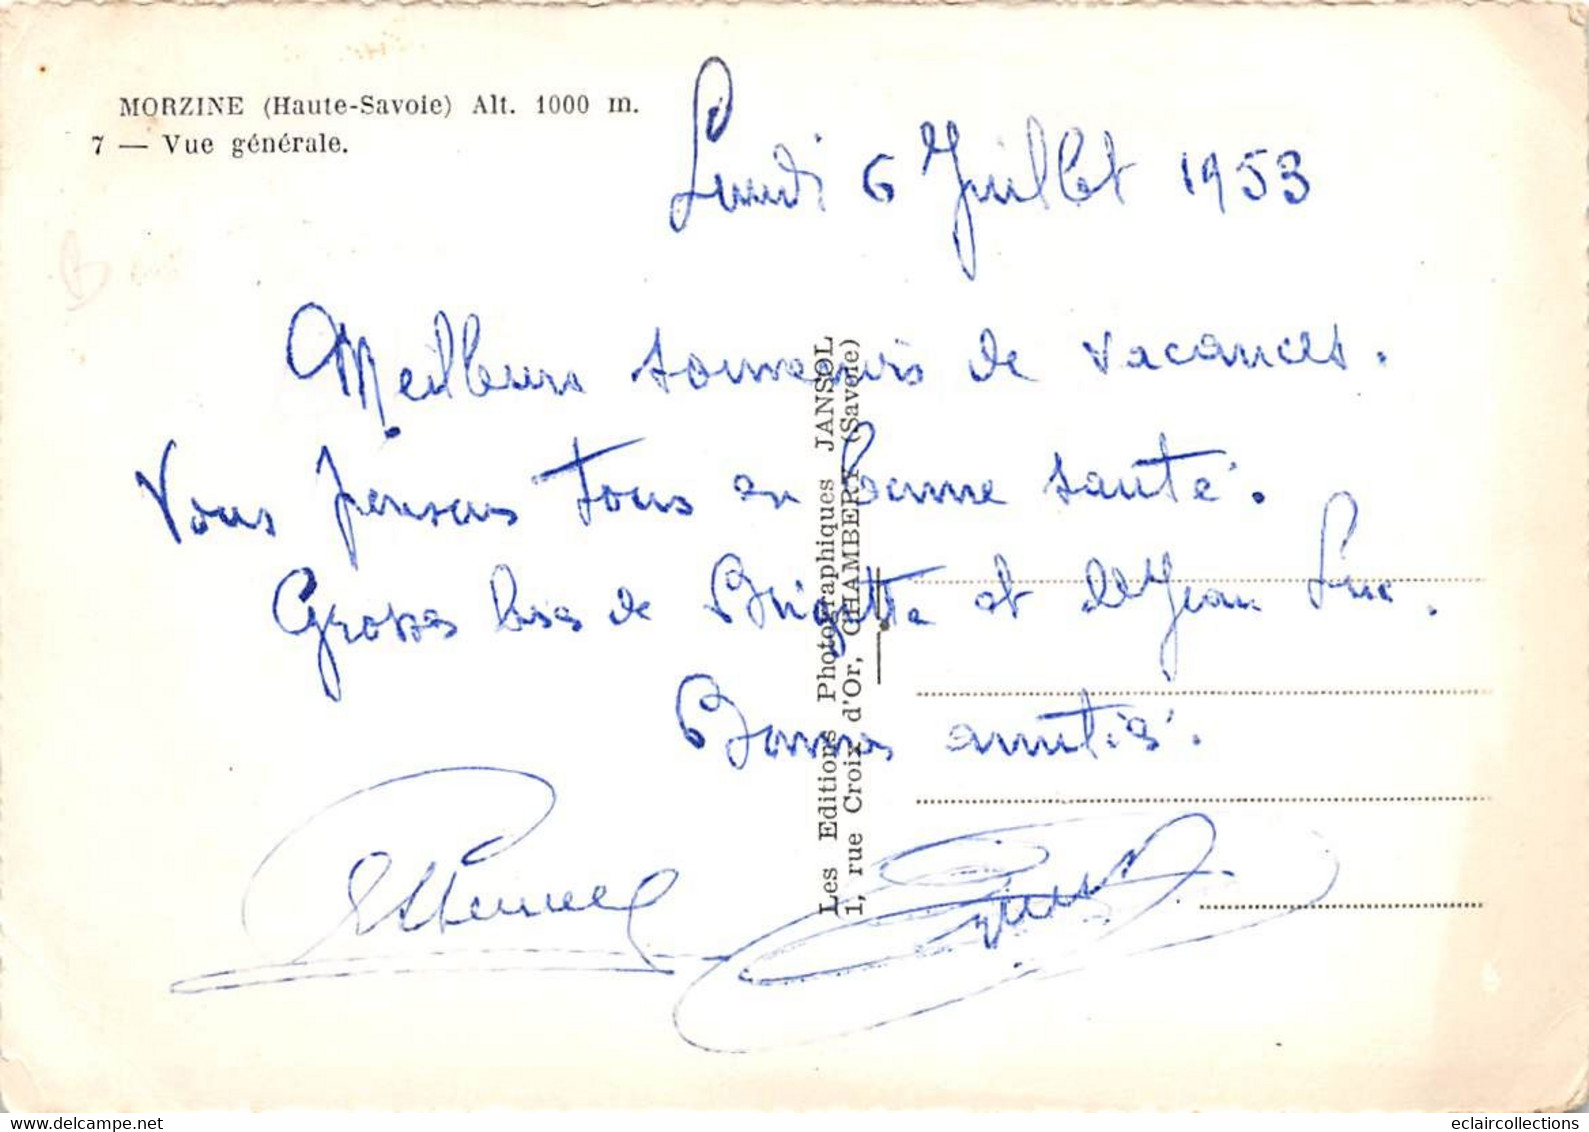 MORZINE (Haute-Savoie) Alt. 1000 m.
7 — Vue générale.
Lundi 6 Juillet 1953
Meilleurs souvenirs de vacances.
Vous pensons tous en bonne santé.
Grosses bises de Brigitte et de Jean Luc.
Bonnes amitiés.
Les Editions Photographiques JANSOL
1, rue Croix d'Or, CHAMBERY (Savoie)
eclaircollections